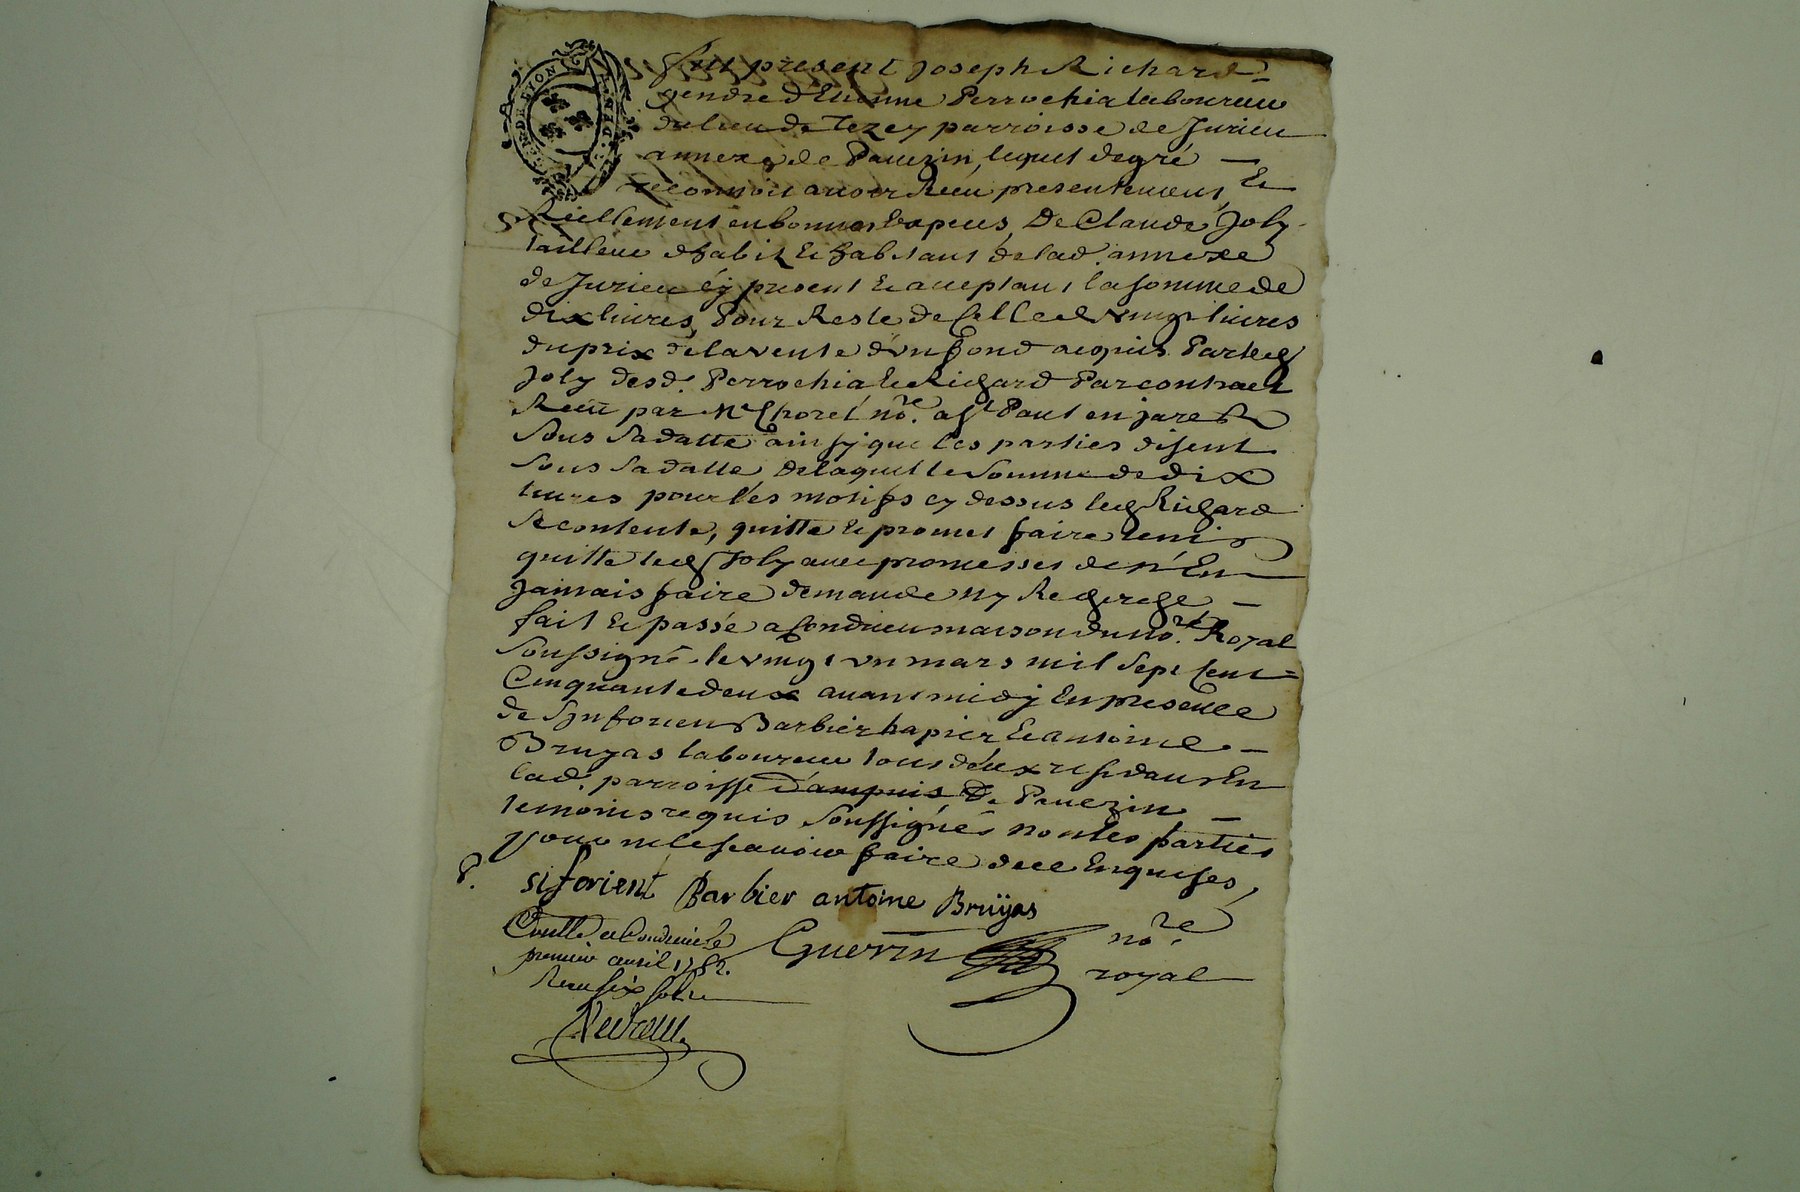 GEN. DE LYON
Fut present Joseph Richard
gendre d'Etienne Perrochia laboureur
du lieu de Tezey parroisse de Jurieu
annexe de Pavezin, lequel de gré
reconnoit avoir Receu presentement, Et
Réellement en bonnes Especes, De Claude Joly
tailleur d'habit & habitant de lad. annexe
de Jurieu cy present & acceptant la somme de
dix livres, Pour Reste de Celle de vingt livres
du prix de la vente d'un fond acquis Par led
Joly desd. Perrochia & Richard Par contract
Receu par Me Choret nore. a St Paul en jarest
sous sa datte ainsy que les parties disent
sous sa datte de laquelle somme de dix
livres pour les motifs cy dessus led Richard
se contente, quitte & promet faire tenir
quitte led Joly avec promesses de n'En
jamais faire demande ny Recherche
fait & passé a Condrieu maison du nore. Royal
soussigné le vingt un mars mil sept cent
Cinquante deux avant midy En presence
de Sinforien Barbier drapier & antoine
Bruyas laboureur tous deux residant En
lad. parroisse d'ampuis de Pavezin
temoins requis soussignés non les parties
pour ne le scavoir faire de ce Enquises,
siforient Barbier antoine Bruÿas
Conllé a Condrieu le
premier avril 1752.
Receu six sols
Guerin nore.
royal